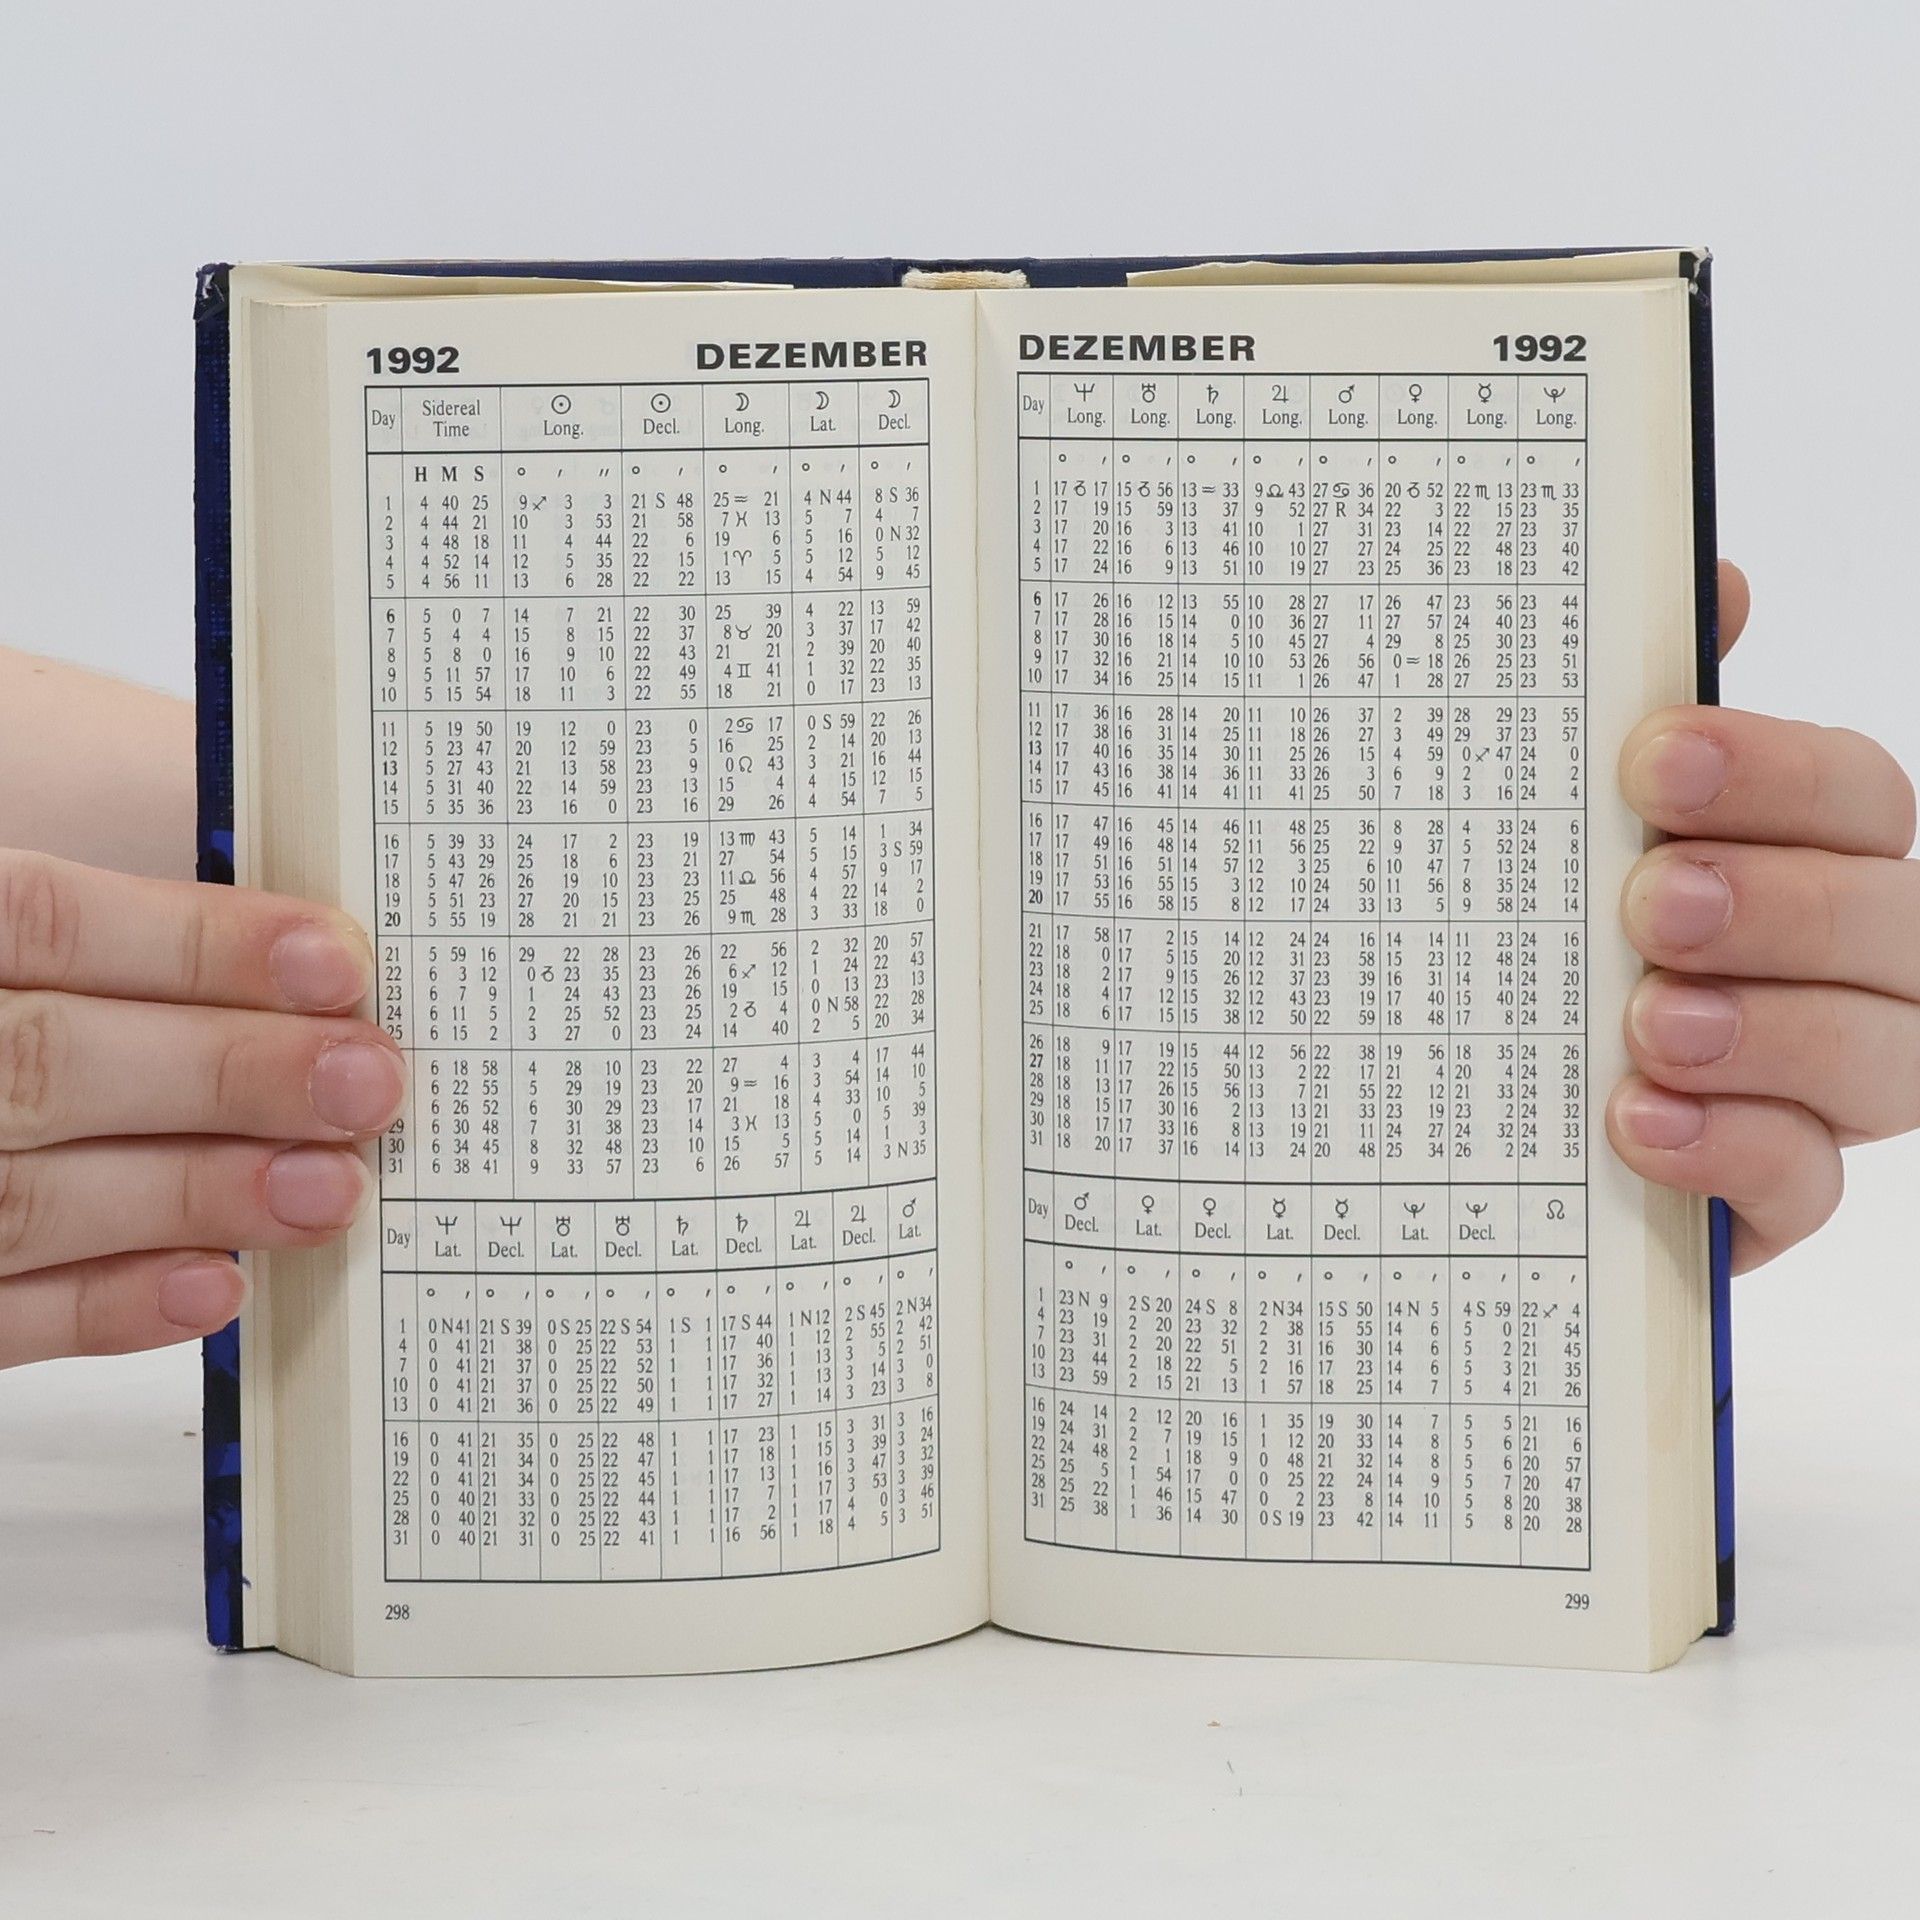 1992 DEZEMBER
Day Sidereal Time ☉ Long. ☉ Decl. ☽ Long. ☽ Lat. ☽ Decl.
H M S ° ′ ″ ° ′ ° ′ ° ′ ° ′
1 4 40 25 9 ♐ 3 3 21 S 48 25 ♒ 21 4 N 44 8 S 36
2 4 44 21 10 3 53 21 58 7 ♓ 13 5 7 4 7
3 4 48 18 11 4 44 22 6 19 6 5 16 0 N 32
4 4 52 14 12 5 35 22 15 1 ♈ 5 5 12 5 12
5 4 56 11 13 6 28 22 22 13 15 4 54 9 45
6 5 0 7 14 7 21 22 30 25 39 4 22 13 59
7 5 4 4 15 8 15 22 37 8 ♉ 20 3 37 17 42
8 5 8 0 16 9 10 22 43 21 21 2 39 20 40
9 5 11 57 17 10 6 22 49 4 ♊ 41 1 32 22 35
10 5 15 54 18 11 3 22 55 18 21 0 17 23 13
11 5 19 50 19 12 0 23 0 2 ♋ 17 0 S 59 22 26
12 5 23 47 20 12 59 23 5 16 25 2 14 20 13
13 5 27 43 21 13 58 23 9 0 ♌ 43 3 21 16 44
14 5 31 40 22 14 59 23 13 15 4 4 15 12 15
15 5 35 36 23 16 0 23 16 29 26 4 54 7 5
16 5 39 33 24 17 2 23 19 13 ♍ 43 5 14 1 34
17 5 43 29 25 18 6 23 21 27 54 5 15 3 S 59
18 5 47 26 26 19 10 23 23 11 ♎ 56 4 57 9 17
19 5 51 23 27 20 15 23 25 25 48 4 22 14 2
20 5 55 19 28 21 21 23 26 9 ♏ 28 3 33 18 0
21 5 59 16 29 22 28 23 26 22 56 2 32 20 57
22 6 3 12 0 ♑ 23 35 23 26 6 ♐ 12 1 24 22 43
23 6 7 9 1 24 43 23 26 19 15 0 13 23 13
24 6 11 5 2 25 52 23 25 2 ♑ 4 0 N 58 22 28
25 6 15 2 3 27 0 23 24 14 40 2 5 20 34
6 18 58 4 28 10 23 22 27 4 3 4 17 44
6 22 55 5 29 19 23 20 9 ♒ 16 3 54 14 10
6 26 52 6 30 29 23 17 21 18 4 33 10 5
29 6 30 48 7 31 38 23 14 3 ♓ 13 5 0 5 39
30 6 34 45 8 32 48 23 10 15 5 5 14 1 3
31 6 38 41 9 33 57 23 6 26 57 5 14 3 N 35
Day ♆ Lat. ♆ Decl. ♅ Lat. ♅ Decl. ♄ Lat. ♄ Decl. ♃ Lat. ♃ Decl. ♂ Lat.
° ′ ° ′ ° ′ ° ′ ° ′ ° ′ ° ′ ° ′ ° ′
1 0 N 41 21 S 39 0 S 25 22 S 54 1 S 1 17 S 44 1 N 12 2 S 45 2 N 34
4 0 41 21 38 0 25 22 53 1 1 17 40 1 12 2 55 2 42
7 0 41 21 37 0 25 22 52 1 1 17 36 1 13 3 5 2 51
10 0 41 21 37 0 25 22 50 1 1 17 32 1 13 3 14 3 0
13 0 41 21 36 0 25 22 49 1 1 17 27 1 14 3 23 3 8
16 0 41 21 35 0 25 22 48 1 1 17 23 1 15 3 31 3 16
19 0 41 21 34 0 25 22 47 1 1 17 18 1 15 3 39 3 24
22 0 41 21 34 0 25 22 45 1 1 17 13 1 16 3 47 3 32
25 0 40 21 33 0 25 22 44 1 1 17 7 1 17 3 53 3 39
28 0 40 21 32 0 25 22 43 1 1 17 2 1 17 4 0 3 46
31 0 40 21 31 0 25 22 41 1 1 16 56 1 18 4 5 3 51
298
DEZEMBER 1992
Day ♆ Long. ♅ Long. ♄ Long. ♃ Long. ♂ Long. ♀ Long. ☿ Long. ♇ Long.
° ′ ° ′ ° ′ ° ′ ° ′ ° ′ ° ′ ° ′
1 17 ♑ 17 15 ♑ 56 13 ♒ 33 9 ♎ 43 27 ♋ 36 20 ♑ 52 22 ♏ 13 23 ♏ 33
2 17 19 15 59 13 37 9 52 27 R 34 22 3 22 15 23 35
3 17 20 16 3 13 41 10 1 27 31 23 14 22 27 23 37
4 17 22 16 6 13 46 10 10 27 27 24 25 22 48 23 40
5 17 24 16 9 13 51 10 19 27 23 25 36 23 18 23 42
6 17 26 16 12 13 55 10 28 27 17 26 47 23 56 23 44
7 17 28 16 15 14 0 10 36 27 11 27 57 24 40 23 46
8 17 30 16 18 14 5 10 45 27 4 29 8 25 30 23 49
9 17 32 16 21 14 10 10 53 26 56 0 ♒ 18 26 25 23 51
10 17 34 16 25 14 15 11 1 26 47 1 28 27 25 23 53
11 17 36 16 28 14 20 11 10 26 37 2 39 28 29 23 55
12 17 38 16 31 14 25 11 18 26 27 3 49 29 37 23 57
13 17 40 16 35 14 30 11 25 26 15 4 59 0 ♐ 47 24 0
14 17 43 16 38 14 36 11 33 26 3 6 9 2 0 24 2
15 17 45 16 41 14 41 11 41 25 50 7 18 3 16 24 4
16 17 47 16 45 14 46 11 48 25 36 8 28 4 33 24 6
17 17 49 16 48 14 52 11 56 25 22 9 37 5 52 24 8
18 17 51 16 51 14 57 12 3 25 6 10 47 7 13 24 10
19 17 53 16 55 15 3 12 10 24 50 11 56 8 35 24 12
20 17 55 16 58 15 8 12 17 24 33 13 5 9 58 24 14
21 17 58 17 2 15 14 12 24 24 16 14 14 11 23 24 16
22 18 0 17 5 15 20 12 31 23 58 15 23 12 48 24 18
23 18 2 17 9 15 26 12 37 23 39 16 31 14 14 24 20
24 18 4 17 12 15 32 12 43 23 19 17 40 15 40 24 22
25 18 6 17 15 15 38 12 50 22 59 18 48 17 8 24 24
26 18 9 17 19 15 44 12 56 22 38 19 56 18 35 24 26
27 18 11 17 22 15 50 13 2 22 17 21 4 20 4 24 28
28 18 13 17 26 15 56 13 7 21 55 22 12 21 33 24 30
29 18 15 17 30 16 2 13 13 21 33 23 19 23 2 24 32
30 18 17 17 33 16 8 13 19 21 11 24 27 24 32 24 33
31 18 20 17 37 16 14 13 24 20 48 25 34 26 2 24 35
Day ♂ Decl. ♀ Lat. ♀ Decl. ☿ Lat. ☿ Decl. ♇ Lat. ♇ Decl. ☊
° ′ ° ′ ° ′ ° ′ ° ′ ° ′ ° ′ ° ′
1 23 N 9 2 S 20 24 S 8 2 N 34 15 S 50 14 N 5 4 S 59 22 ♐ 4
4 23 19 2 20 23 32 2 38 15 55 14 6 5 0 21 54
7 23 31 2 20 22 51 2 31 16 30 14 6 5 2 21 45
10 23 44 2 18 22 5 2 16 17 23 14 6 5 3 21 35
13 23 59 2 15 21 13 1 57 18 25 14 7 5 4 21 26
16 24 14 2 12 20 16 1 35 19 30 14 7 5 5 21 16
19 24 31 2 7 19 15 1 12 20 33 14 8 5 6 21 6
22 24 48 2 1 18 9 0 48 21 32 14 8 5 6 20 57
25 25 5 1 54 17 0 0 25 22 24 14 9 5 7 20 47
28 25 22 1 46 15 47 0 2 23 8 14 10 5 8 20 38
31 25 38 1 36 14 30 0 S 19 23 42 14 11 5 8 20 28
299